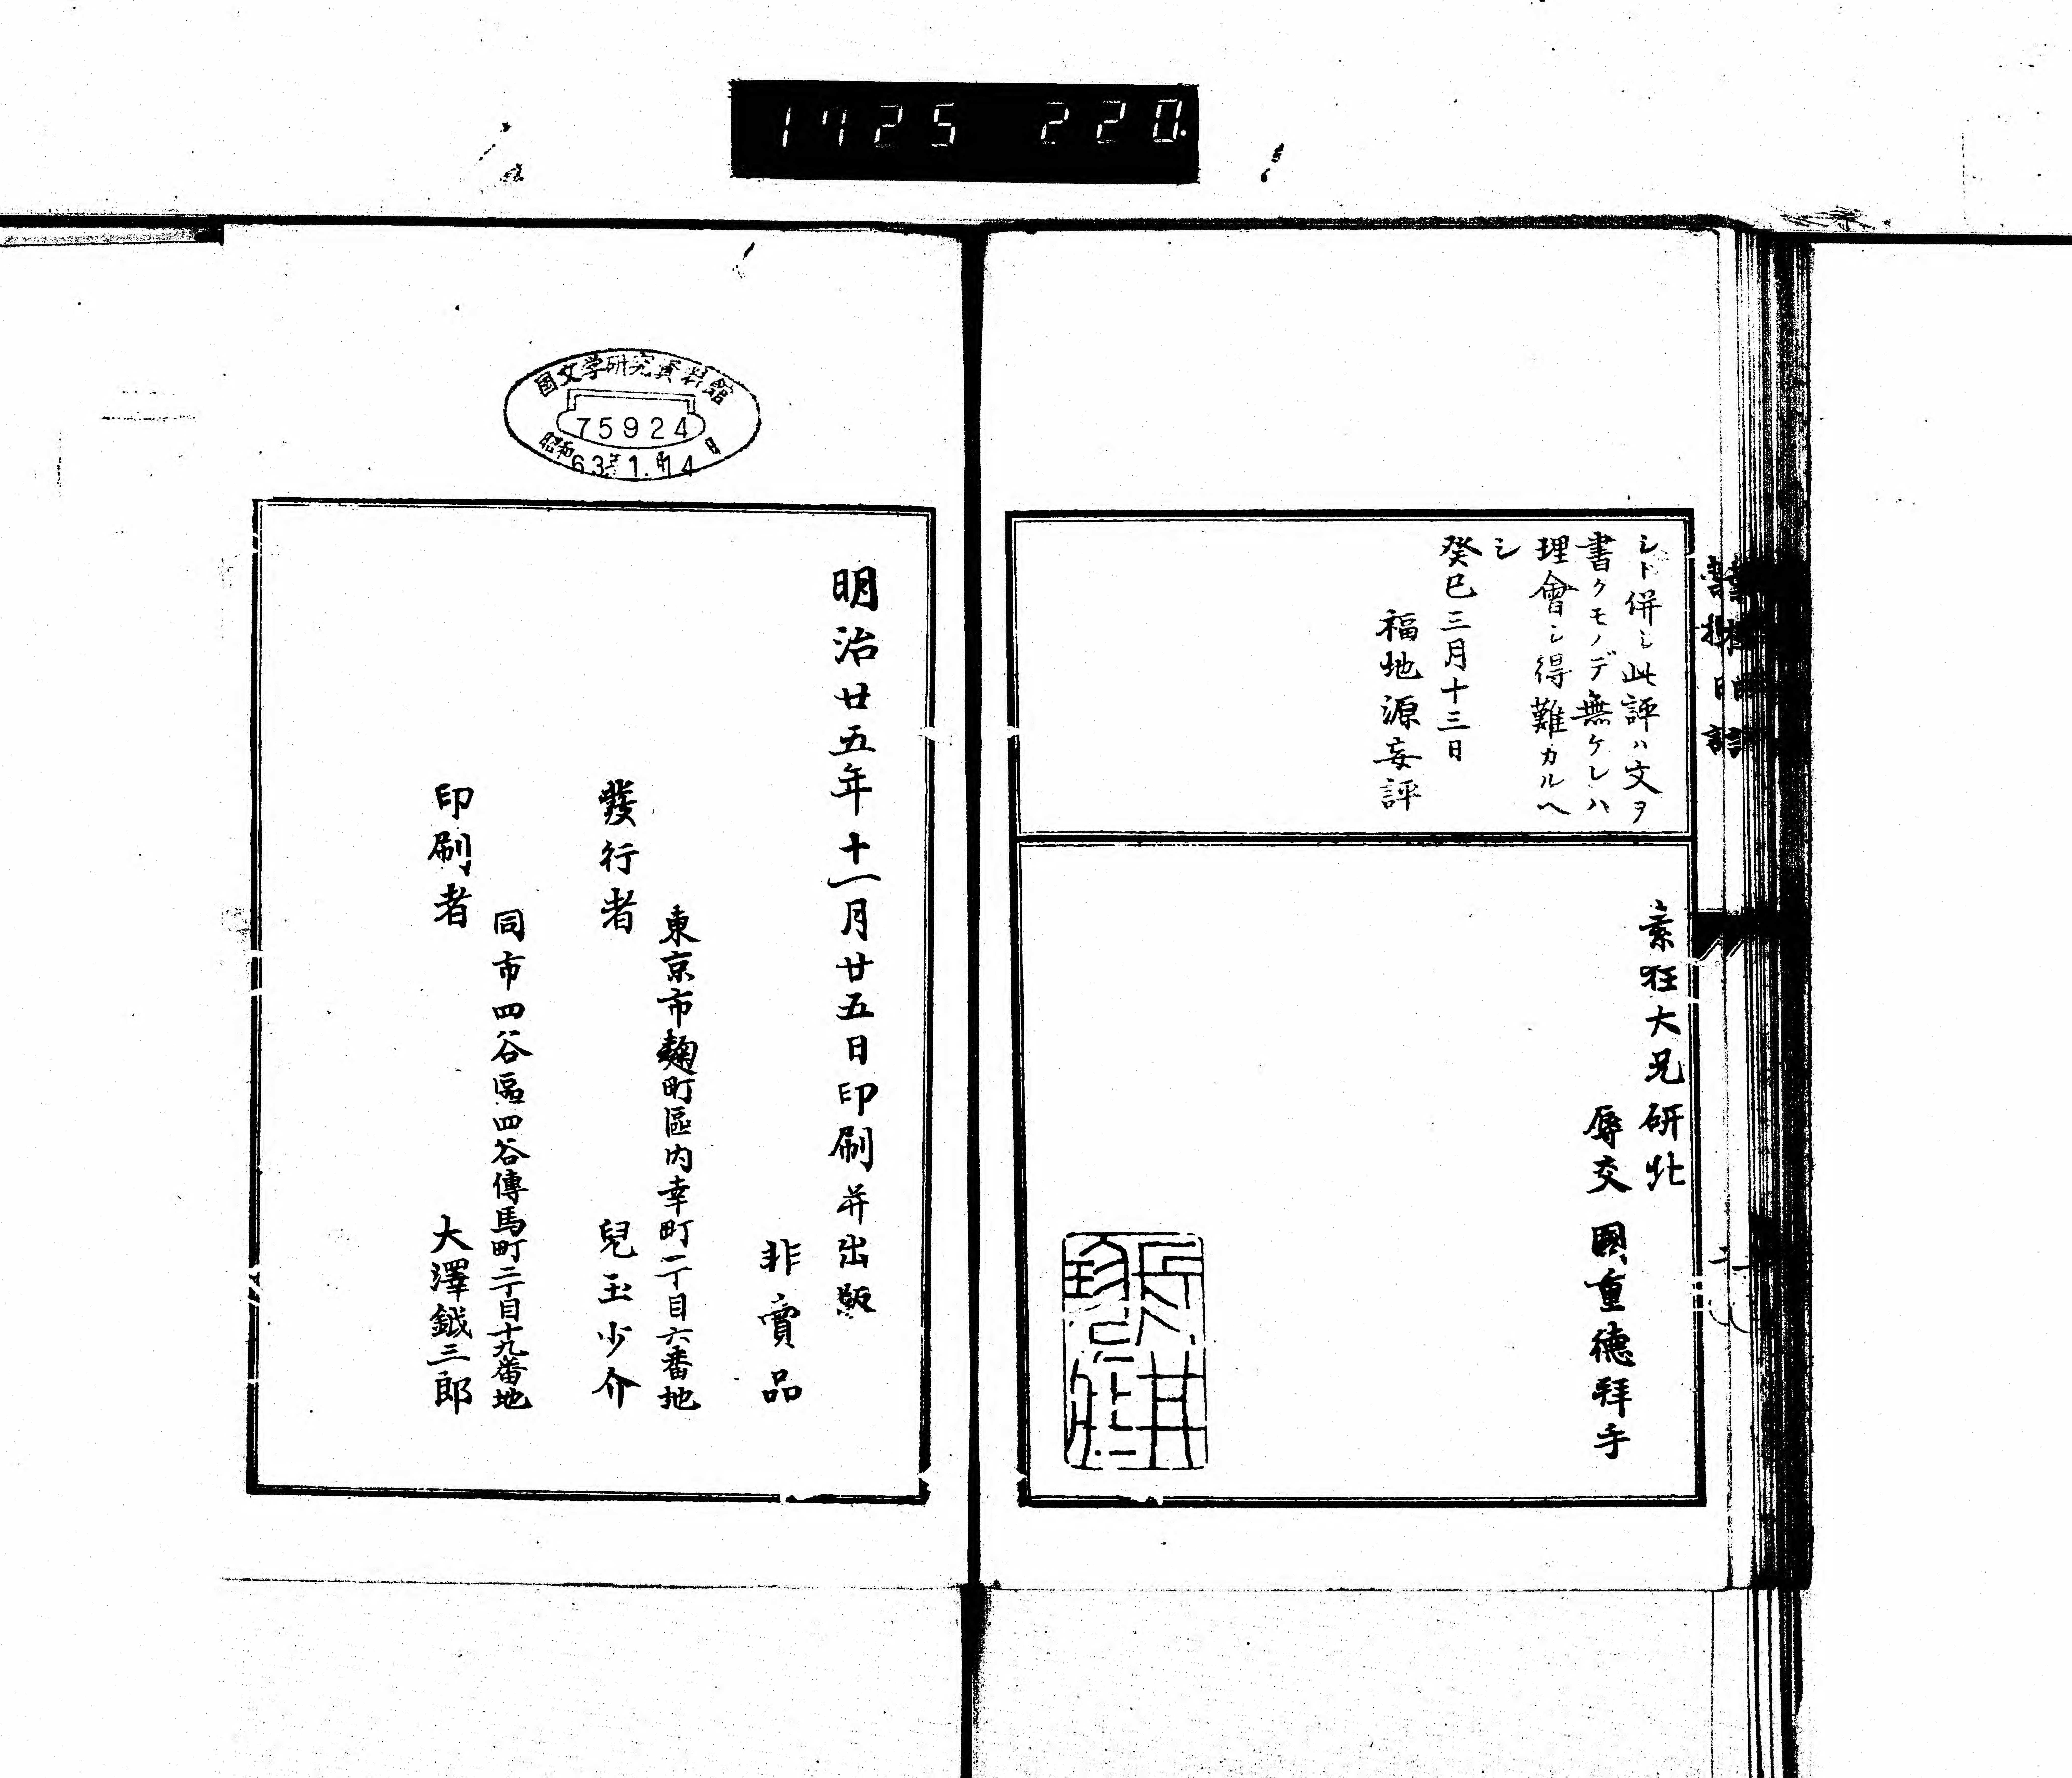 1725 220.
シト併シ此評ハ文ヲ
書クモノデ無ケレハ
理會シ得難カルヘ
シ
癸巳三月十三日
福地源妄評
素狂大兄 研北
辱交 國重德拜手
國文学研究資料館
75924
昭和63年1月14日
明治廿五年十一月廿五日印刷并出版
非賣品
東京市麴町區内幸町一丁目六番地
發行者 兒玉少介
同市四谷區四谷傳馬町二丁目十九番地
印刷者 大澤鉞三郎